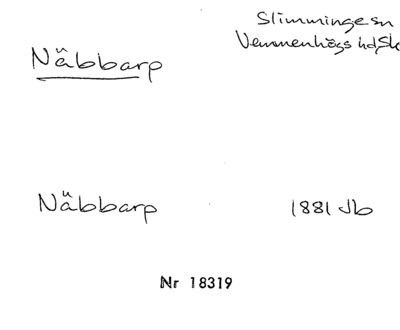 Slimminge sn
Vemmenhögs hd, Sk
Näbbarp
Näbbarp 1881 Jb
Nr 18319